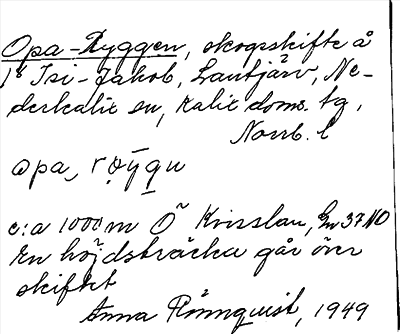 Opa-Ryggen, skogsskifte å
1⁸ Isi-Jakob, Lantjärv, Ne-
derkalix sn, Kalix doms. tg,
Norrb. l
opa, røygu
c:a 1000 m Ö Kvisslau, En 37 NO
En höjdsträcka går över
skiftet
Anna Rönnquist, 1949